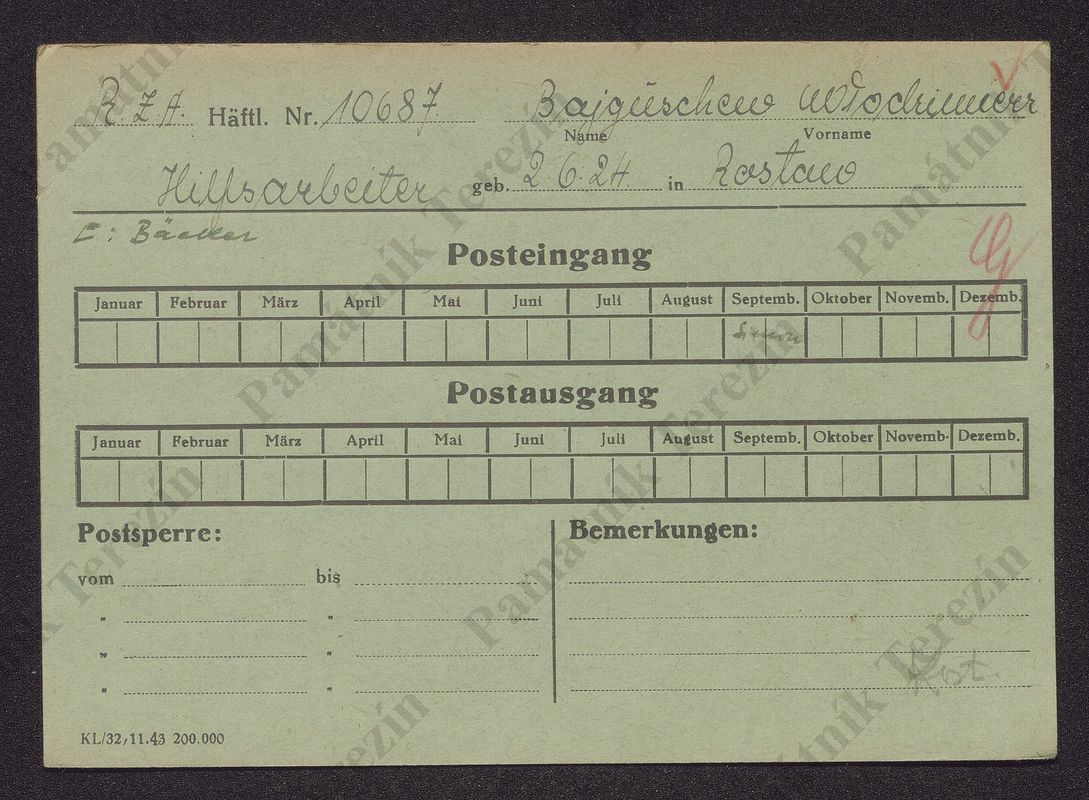 R.Z.A. Häftl. Nr. 10687. Bajguschew Włodzimierz
Name Vorname
Hilfsarbeiter geb. 2.6.24. in Rostaw
E: Bäcker
Posteingang
Januar Februar März April Mai Juni Juli August Septemb. Oktober Novemb. Dezemb.
Postausgang
Januar Februar März April Mai Juni Juli August Septemb. Oktober Novemb. Dezemb.
Postsperre: Bemerkungen:
vom bis
" "
" "
" "
Rost.
KL/32/11.43 200.000
Památník Terezín